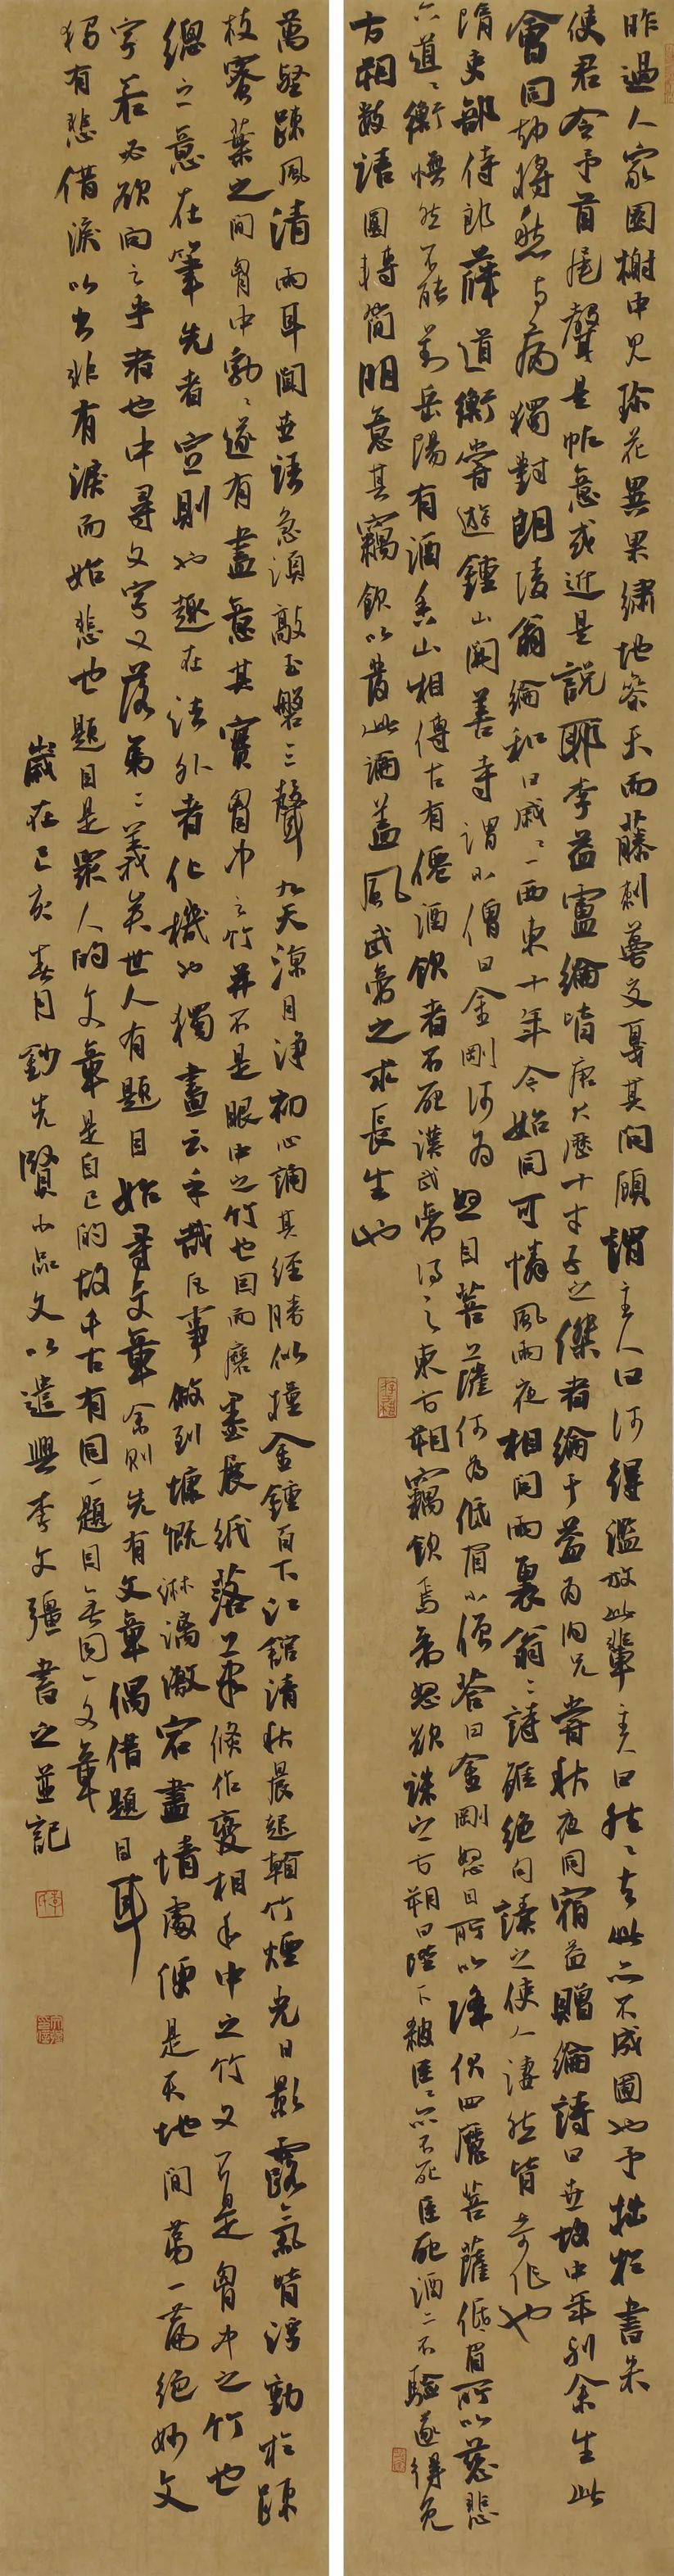 昨過人家園榭中見珍花異果繡地參天而藤刺蔓交戛其間顧謂主人曰何得濫放此輩主人曰然〻去此亦不成圃也予拙於書朱
使君令予首尾聲是帖意或近是說耶李益盧綸皆唐大歷十才子之傑者綸于益為內兄嘗秋夜同宿益贈綸詩曰世故中年別余生此
會同却將愁與病獨對朗陵翁綸和曰戚〻一西東十年今始同可憐風雨夜相問兩衰翁二詩雖絕句讀之使人淒然皆奇作也
隋吏部侍郎薛道衡嘗遊鍾山開善寺謂小僧曰金剛何為怒目菩薩何為低眉小僧答曰金剛怒目所以降伏四魔菩薩低眉所以慈悲
六道〻衡憮然不能對岳陽有酒香山相傳古有僊酒飲者不死漢武帝得之東方朔竊飲焉帝怒欲誅之方朔曰陛下殺臣〻亦不死臣死酒亦不驗遂得免
方朔數語圓轉簡明意其竊飲以發此諷蓋風武帝之求長生也
萬壑疎風清兩耳聞世語急須敲玉磬三聲九天涼月淨初心誦其經勝似撞金鐘百下江館清秋晨起看竹煙光日影露氣皆浮動於疎
枝密葉之間胸中勃〻遂有畫意其實胸中之竹並不是眼中之竹也因而磨墨展紙落筆倏作變相手中之竹又不是胸中之竹也
總之意在筆先者定則也趣在法外者化機也獨畫云乎哉凡事做到慷慨淋漓激宕盡情處便是天地間第一篇絕妙文
字若必欲向之乎者也中尋文字又落第二義矣世人有題目始尋文章余則先有文章偶借題目耳
猶有悲借淚以出非有淚而始悲也題目是眾人的文章是自己的故千古有同一題目無同一文章
歲在己亥春月鈔先賢小品文以遣興李文彊書之並記